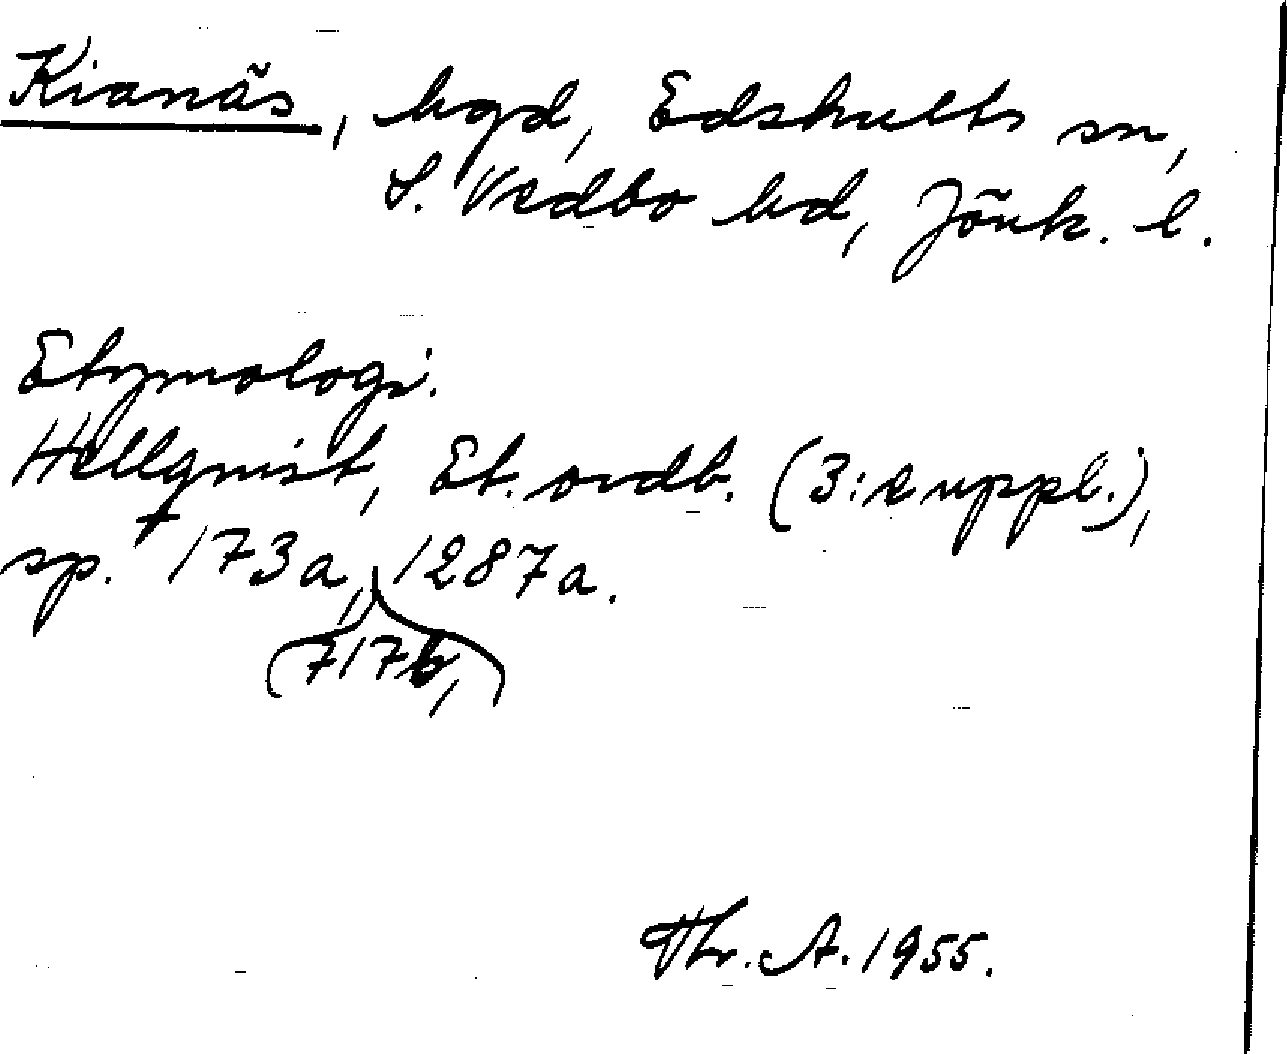 Kianäs, hgd, Edshults sn,
S. Vedbo hd, Jönk. l.
Etymologi.
Hellquist, Et. ordb. (3:e uppl.),
sp. 173a, 1287a.
(717b,)
Thr. A. 1955.